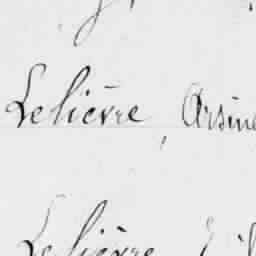 Lelièvre, Arsine
Lelièvre